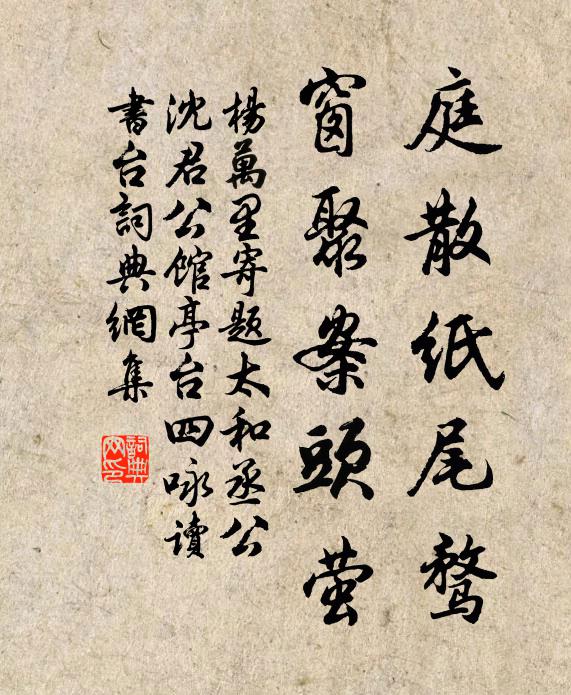 庭散紙尾鶩
窗聚案頭萤
楊萬里寄題太和丞公
沈君公館亭台四咏讀
書台詞典網集
詞典
网印